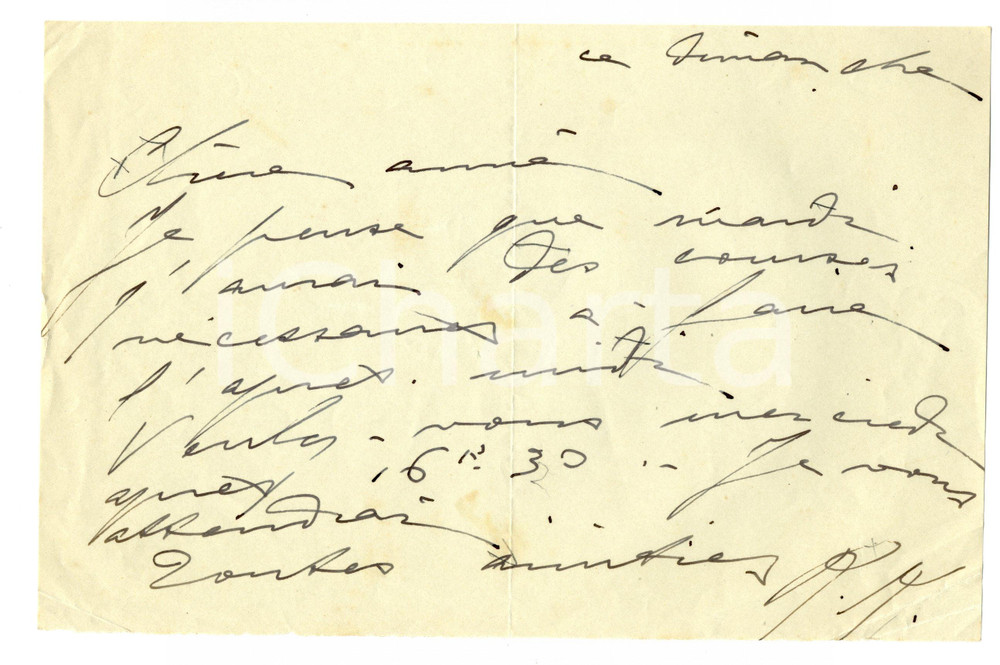 ce Dimanche
Chère amie
Je pense que mardi
j'aurai des courses
nécessaires à faire
l'après-midi.
Voulez-vous mercredi
après 16 h 30 .- Je vous
attendrai
Toutes amitiés
iCharta